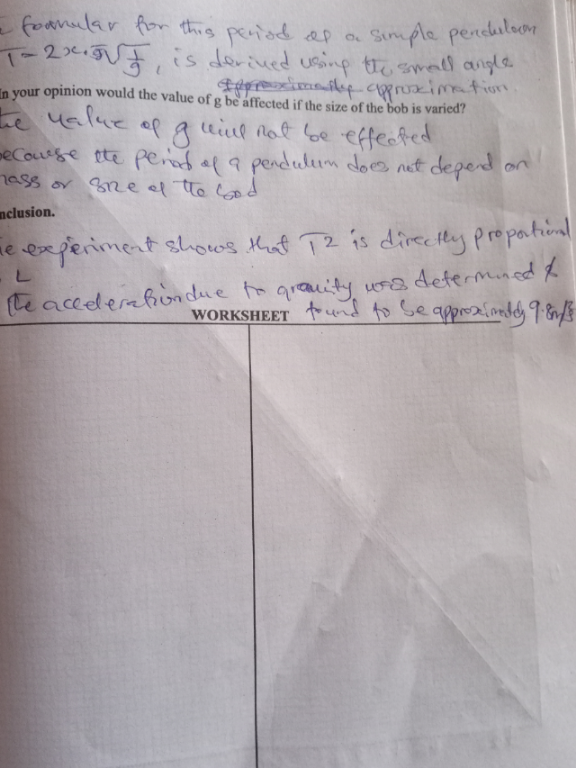 formular for this period of a simple pendulum
T = 2x.π√L/g, is derived using the small angle
approximation.
In your opinion would the value of g be affected if the size of the bob is varied?
value of g will not be effected
because the period of a pendulum does not depend on
mass or size of the bod
nclusion.
experiment shows that T2 is directly proportional
L
The acceleration due to gravity was determined &
WORKSHEET found to be approximately 9.8m/s